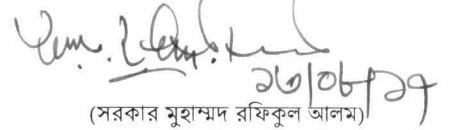 ১৩/০৮/১৭
(সরকার মুহাম্মদ রফিকুল আলম)